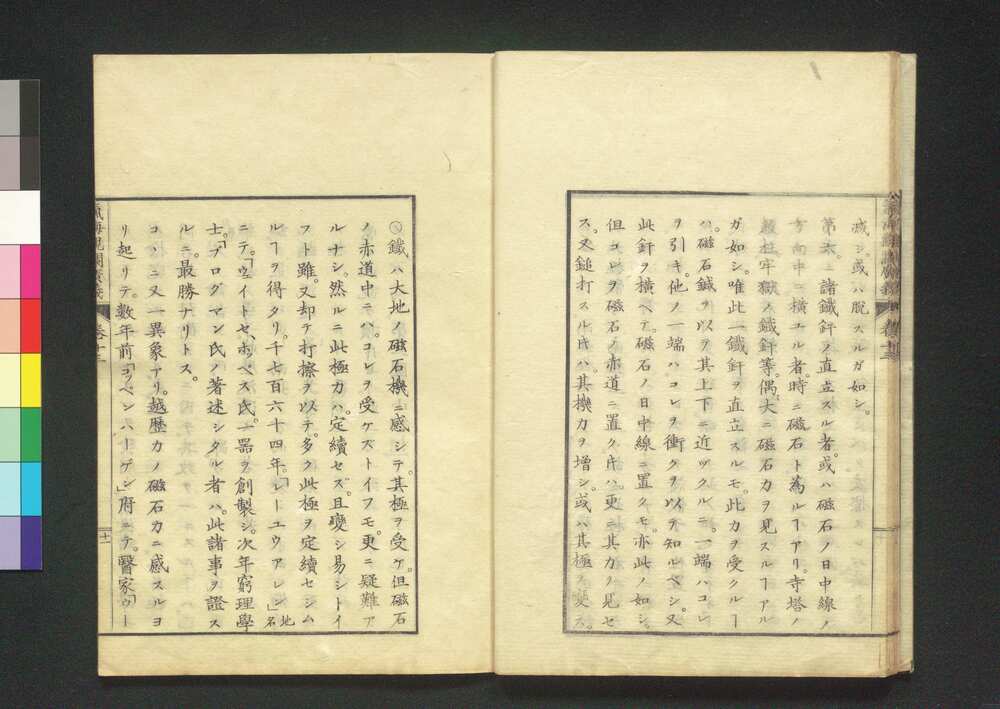 減シ。或ハ脱スルガ如シ。
第本上諸鐵釬ノ直立スル者。或ハ磁石ノ日中線ノ
方向中ニ横エル者。時ニ磁石ト為ルヿアリ。寺塔ノ
鐵柱牢獄ノ鐵釬等。偶〻大ニ磁石力ヲ見スルヿアル
ガ如シ。唯此一鐵釬ヲ直立スルモ。此力ヲ受クルヿ
ハ。磁石鍼ヲ以テ其上下ニ近ヅクルニ。一端ハコレ
ヲ引キ。他ノ一端ハコレヲ衝クヲ以テ知ルベシ。又
此釬ヲ横ヘテ。磁石ノ日中線ニ置クモ。亦此ノ如シ。
但コレヲ磁石ノ赤道ニ置ク片ハ。更ニ其力ノ見セ
ス。又鎚打スル片ハ。其機力ヲ増シ。或ハ其極ヲ變ス。
鐵ハ大地ノ磁石機ニ感シテ。其極ヲ受ケ。但磁石
ノ赤道中ニハ。コレヲ受ケストイフモ。更ニ疑難ア
ルナシ。然ルニ此極力ハ。定續セズ。且變シ易シトイ
フト雖。又却テ打擦ヲ以テ。多ク此極ヲ定續セシム
ルヿヲ得タリ。千七百六十四年。「レーユウアレン」地名
ニテ。「ウイトセ、ホベス氏。一器ヲ創製シ。次年窮理學
士。「ブログマン氏ノ著述シタル者ハ。此諸事ヲ證ス
ルニ。最勝ナリトス。
コヽニ又一異象アリ。越歴力ノ磁石力ニ感スルヨ
リ起リテ。數年前「コッペンハーゲン」府ニテ。醫家「ウー
卷十三
十一